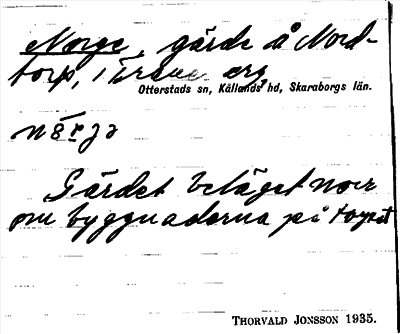 Norge, gärde å Nord-
torp,
Otterstads sn, Kållands hd, Skaraborgs län.
Gärdet beläget norr
om byggnaderna på torpet
THORVALD JONSSON 1935.